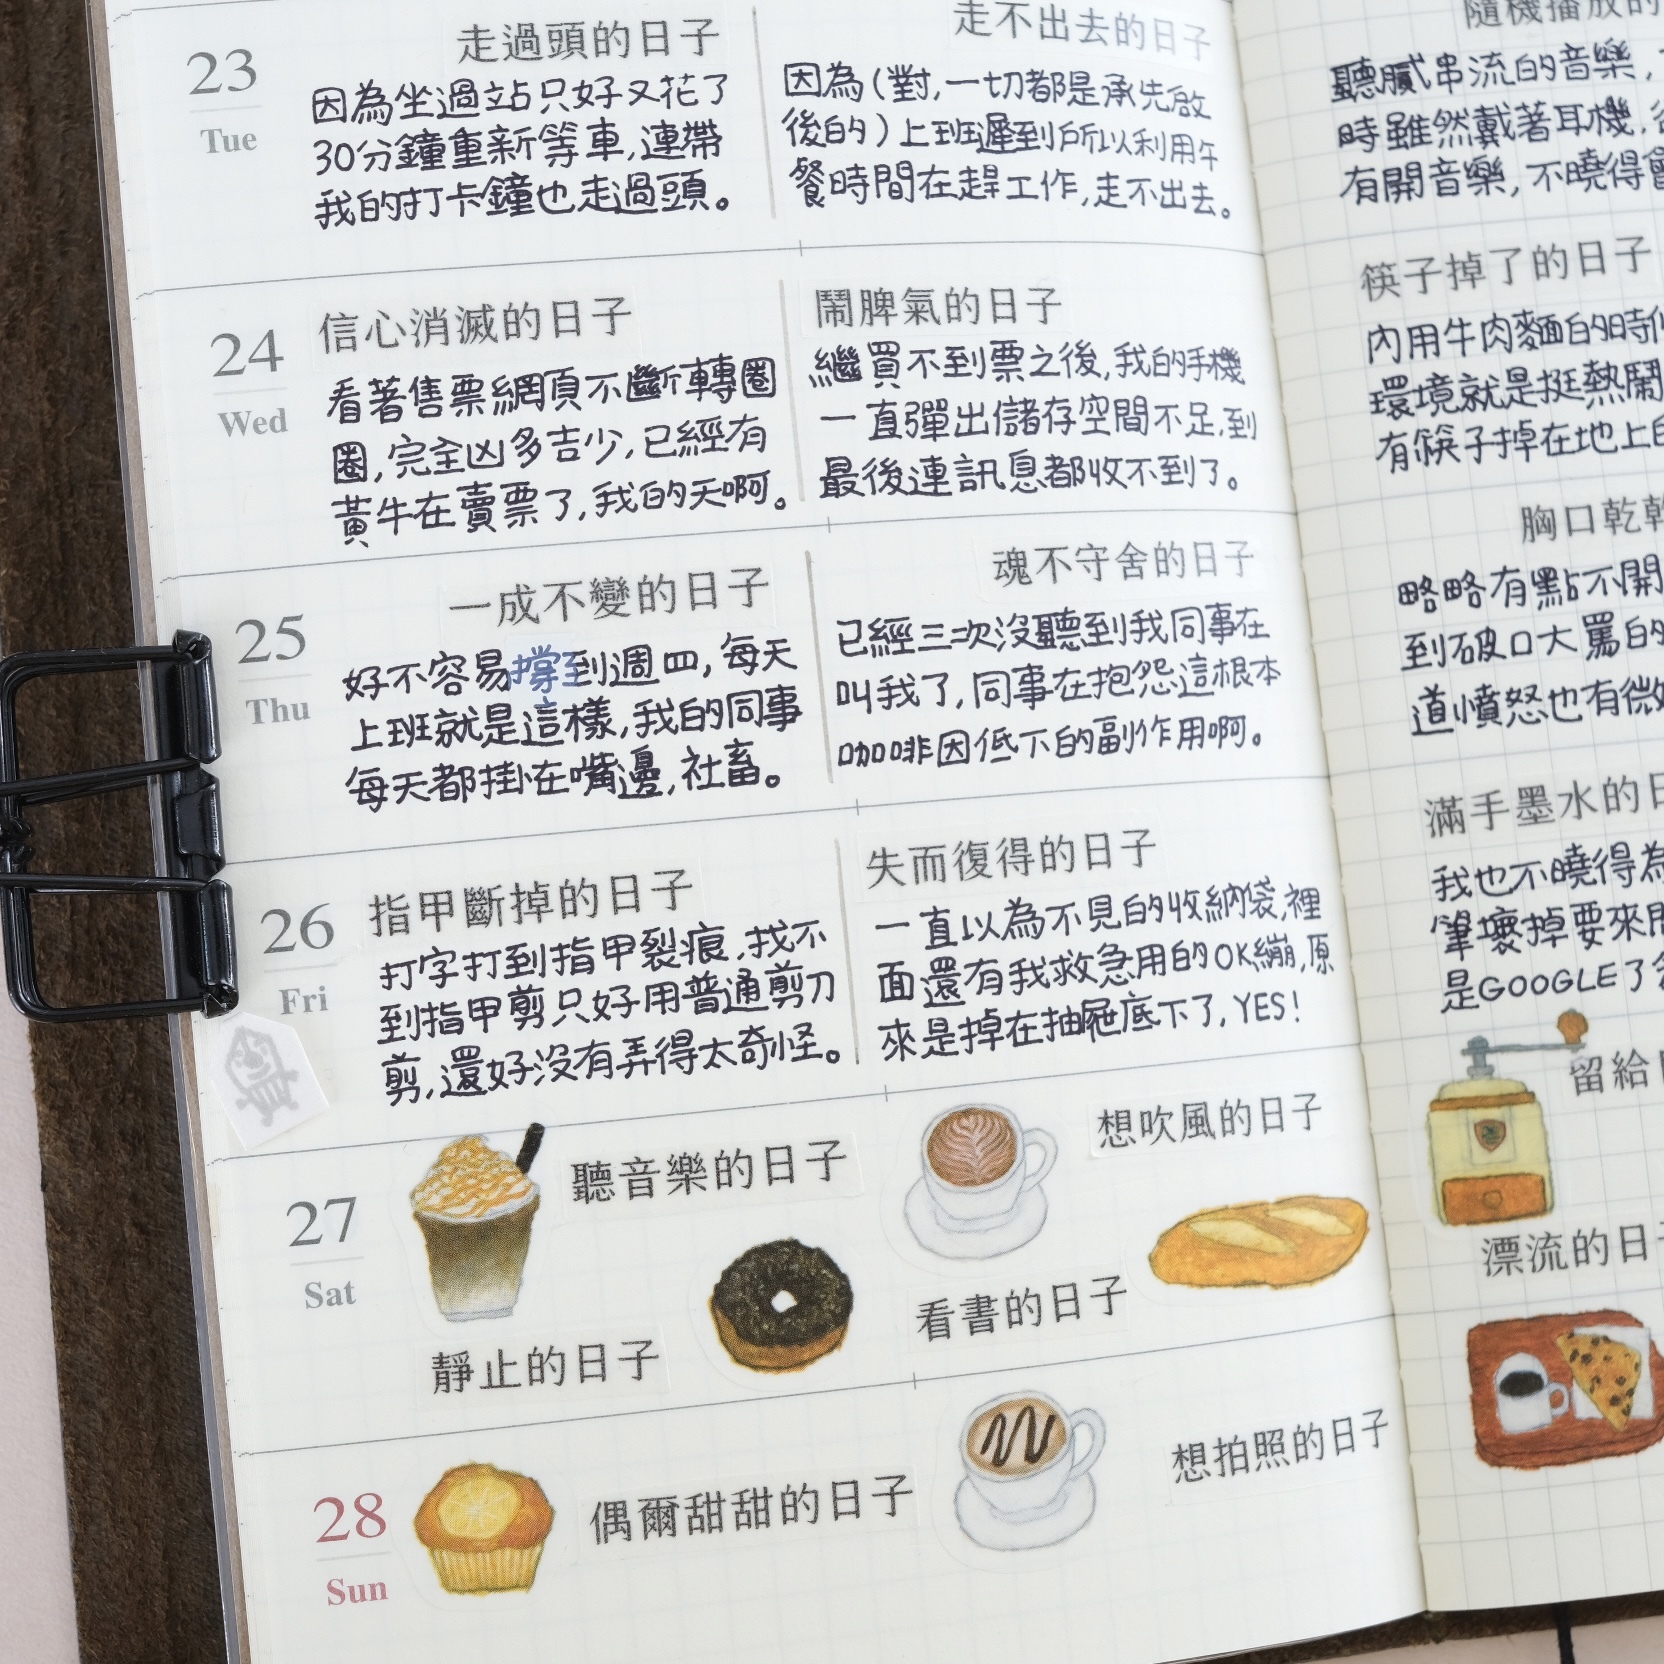 23
Tue
走過頭的日子
因為坐過站只好又花了
30分鐘重新等車,連帶
我的打卡鐘也走過頭。
走不出去的日子
因為(對,一切都是承先啟
後的)上班遲到所以利用午
餐時間在趕工作,走不出去。
24
Wed
信心消滅的日子
看著售票網頁不斷轉圈
圈,完全凶多吉少,已經有
黃牛在賣票了,我的天啊。
鬧脾氣的日子
繼買不到票之後,我的手機
一直彈出儲存空間不足,到
最後連訊息都收不到了。
25
Thu
一成不變的日子
好不容易撐至到週四,每天
上班就是這樣,我的同事
每天都掛在嘴邊,社畜。
魂不守舍的日子
已經三次沒聽到我同事在
叫我了,同事在抱怨這根本
咖啡因低下的副作用啊。
26
Fri
指甲斷掉的日子
打字打到指甲裂痕,找不
到指甲剪只好用普通剪刀
剪,還好沒有弄得太奇怪。
失而復得的日子
一直以為不見的收納袋,裡
面還有我救急用的OK繃,原
來是掉在抽屜底下了,YES!
27
Sat
聽音樂的日子
想吹風的日子
靜止的日子
看書的日子
28
Sun
偶爾甜甜的日子
想拍照的日子
隨機播放的
聽膩串流的音樂,
時雖然戴著耳機,
有開音樂,不曉得
筷子掉了的日子
內用牛肉麵的時
環境就是挺熱鬧
有筷子掉在地上
胸口乾
略略有點不開
到破口大罵的
道憤怒也有微
滿手墨水的日
我也不曉得為
筆壞掉要來
是GOOGLE了
留給
漂流的日子